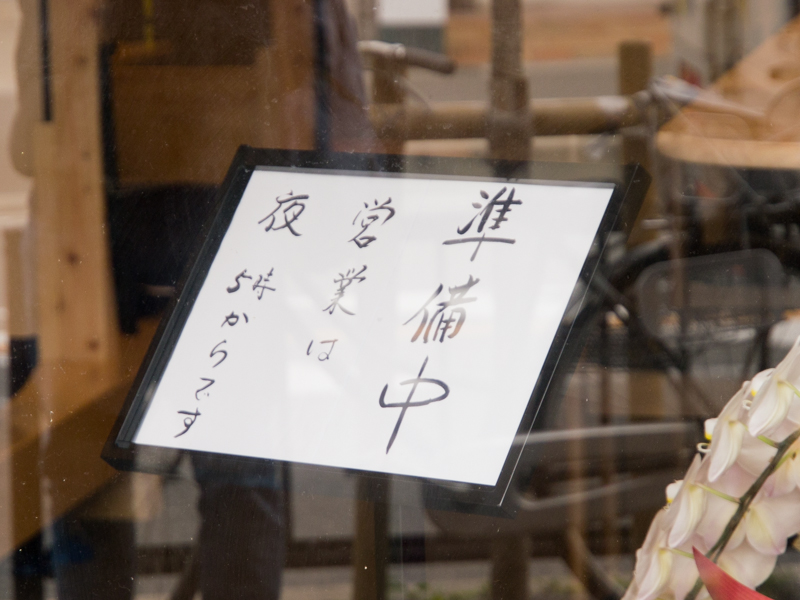 準備中
営業は
夜5時からです